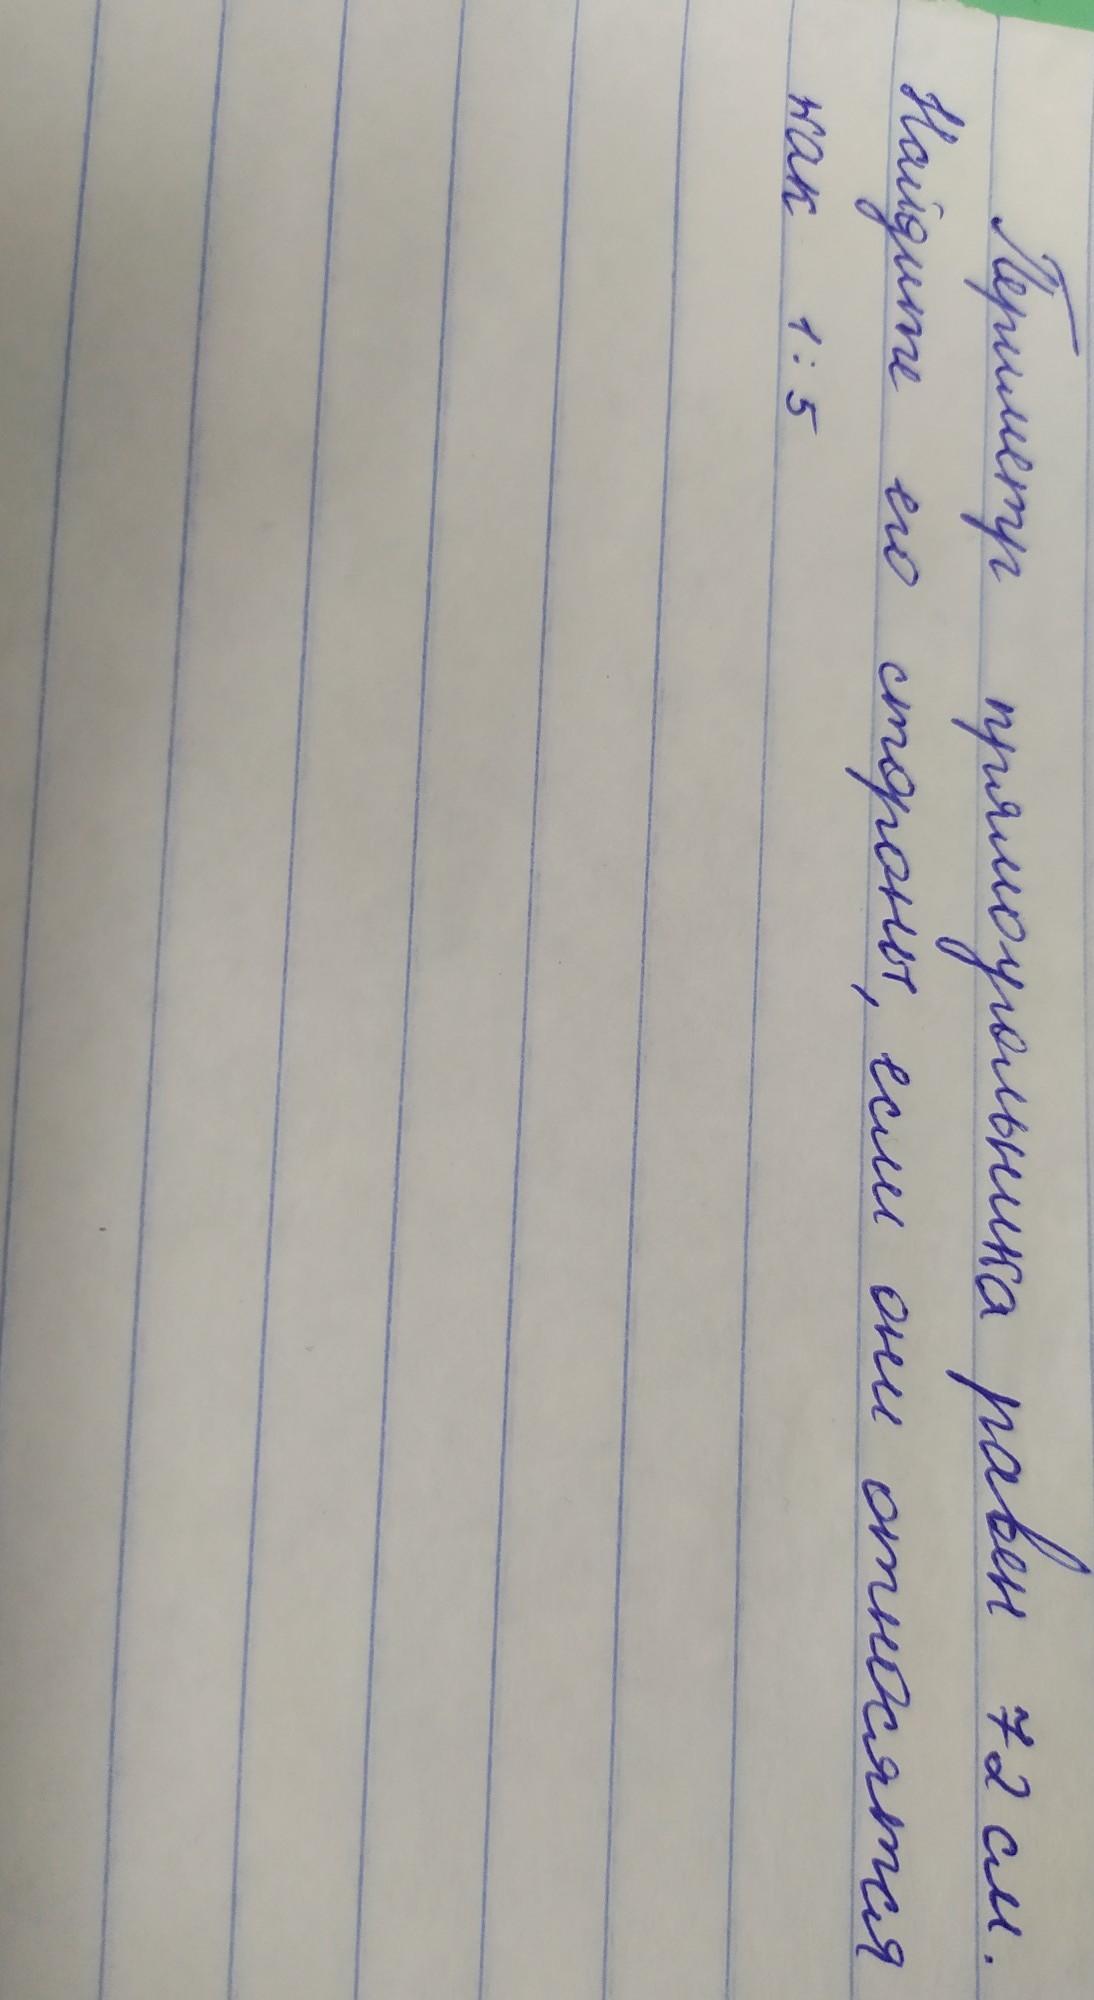 Периметр прямоугольника равен 72 см.
Найдите его стороны, если они относятся
как 1:5